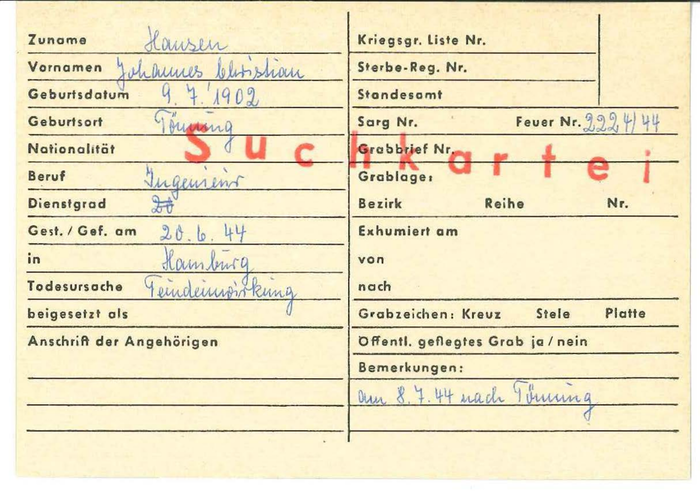 Zuname Hansen
Vornamen Johannes Christian
Geburtsdatum 9.7.1902
Geburtsort Tönning
Nationalität
Beruf Ingenieur
Dienstgrad 20
Gest. / Gef. am 20.6.44
in Hamburg
Todesursache Feindeinwirkung
beigesetzt als
Anschrift der Angehörigen
Kriegsgr. Liste Nr.
Sterbe-Reg. Nr.
Standesamt
Sarg Nr. Feuer Nr. 2224/44
Grabbrief Nr.
Grablage:
Bezirk Reihe Nr.
Exhumiert am
von
nach
Grabzeichen: Kreuz Stele Platte
Öffentl. geflegtes Grab ja / nein
Bemerkungen:
am 8.7.44 nach Tönning
Suchkartei